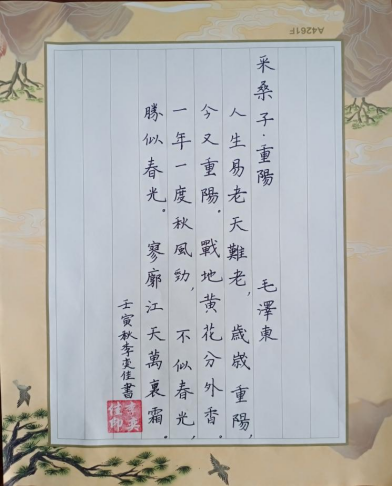 采桑子·重陽 毛澤東
人生易老天難老，歲歲重陽，
今又重陽。戰地黄花分外香。
一年一度秋風勁，不似春光，
勝似春光。寥廓江天萬裏霜。
壬寅秋李奕佳書
李奕佳印
A4261F